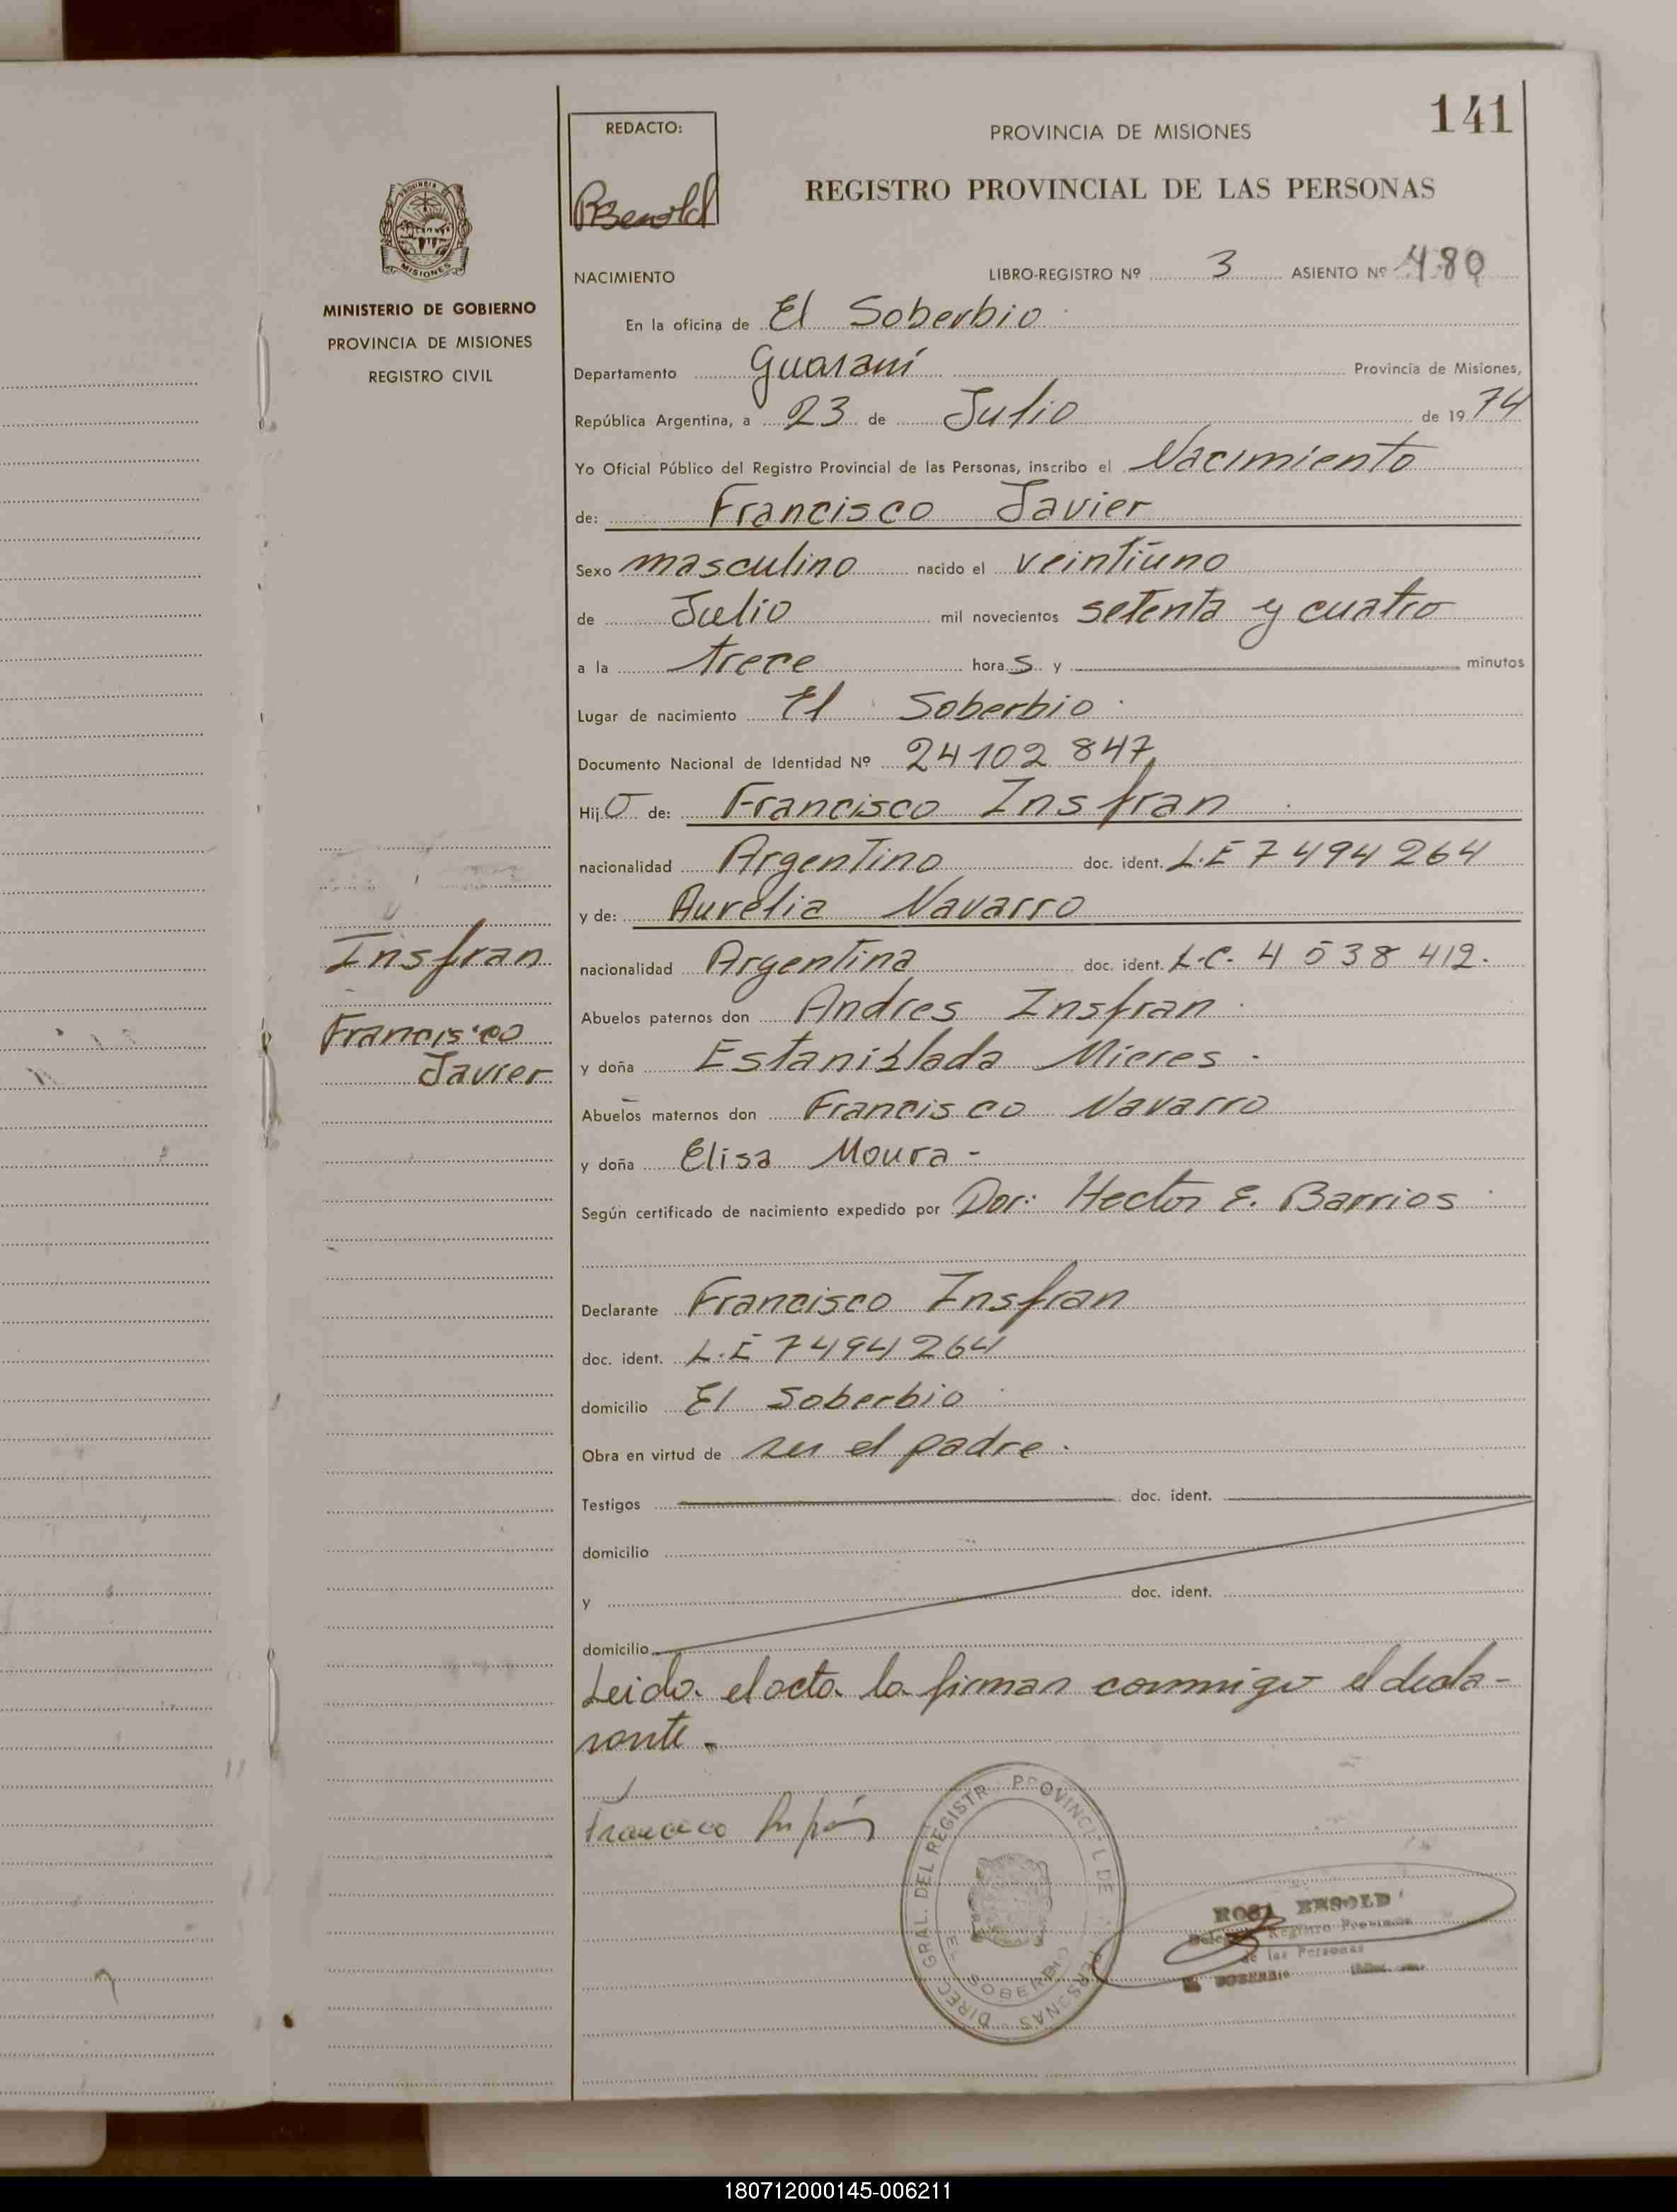 141
REDACTO:
RBesold
PROVINCIA DE MISIONES
REGISTRO PROVINCIAL DE LAS PERSONAS
PROVINCIA DE
MISIONES
MINISTERIO DE GOBIERNO
PROVINCIA DE MISIONES
REGISTRO CIVIL
NACIMIENTO LIBRO-REGISTRO Nº 3 ASIENTO Nº 480
En la oficina de El Soberbio
Departamento Guaraní Provincia de Misiones,
República Argentina, a 23 de Julio de 1974
Yo Oficial Público del Registro Provincial de las Personas, inscribo el Nacimiento
de: Francisco Javier
Sexo masculino nacido el veintiuno
de Julio mil novecientos setenta y cuatro
a la trece horas y minutos
Lugar de nacimiento El Soberbio
Documento Nacional de Identidad Nº 24102847
Hijo de: Francisco Insfran
nacionalidad Argentino doc. ident. L.E 7494264
y de: Aurelia Navarro
nacionalidad Argentina doc. ident. L.C. 4 538 412.
Abuelos paternos don Andres Insfran
y doña Estanislada Mieres
Abuelos maternos don Francisco Navarro
y doña Elisa Moura -
Según certificado de nacimiento expedido por Dor: Hector E. Barrios
Insfran
Francisco
Javier
Declarante Francisco Insfran
doc. ident. L.E 7494264
domicilio El Soberbio
Obra en virtud de ser el padre.
Testigos doc. ident.
domicilio
y doc. ident.
domicilio
Leida el acta la firman conmigo el decla-
rante.
Francisco Insfrán
DIREC. GRAL. DEL REGISTR PROVINCI L DE PERSONAS
SOBERBIO
ROSA BESOLD
Registro Provincial
de las Personas
SOBERBIO
180712000145-006211